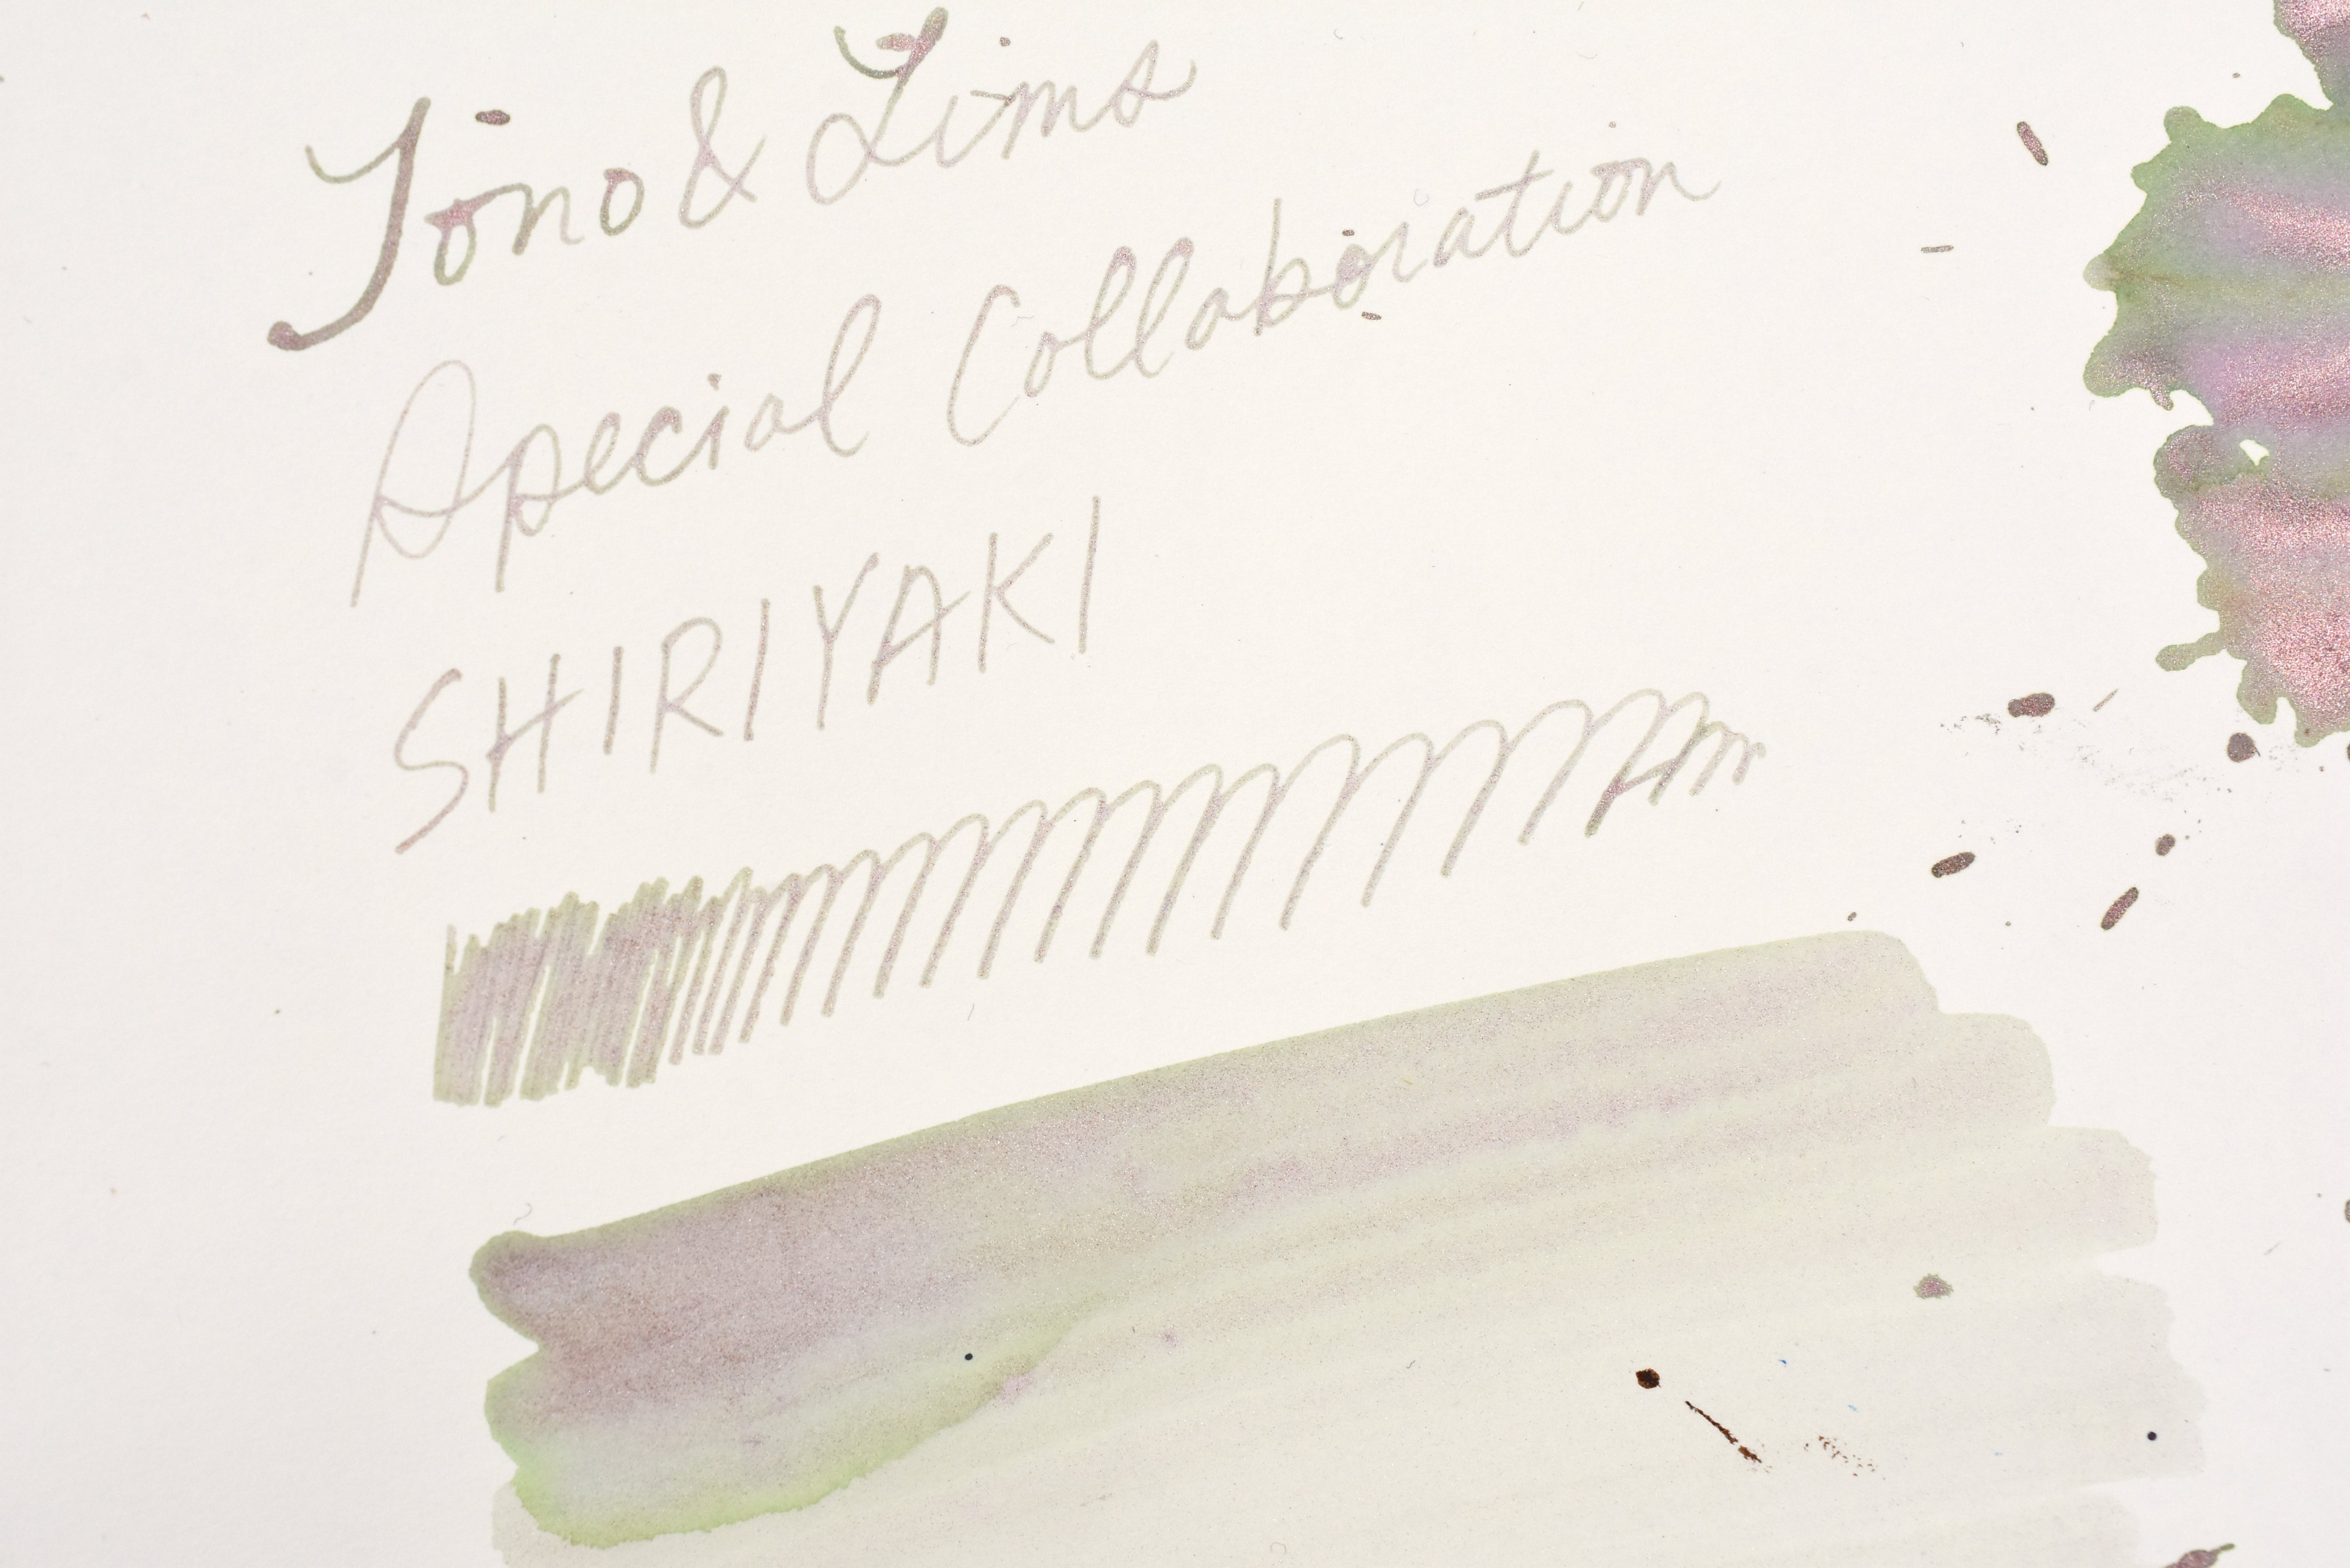 Tono & Lims
Special Collaboration
SHIRIYAKI